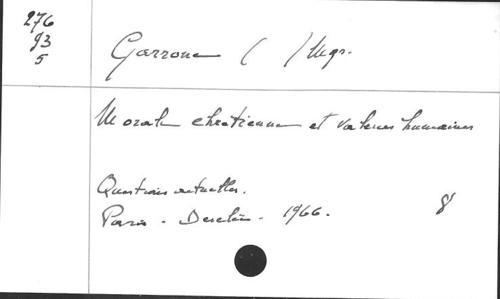 276
93
5
Garrone ( ) Mgr.
Morale chrétienne et valeurs humaines
Questions actuelles.
Paris - Desclée - 1966. 8